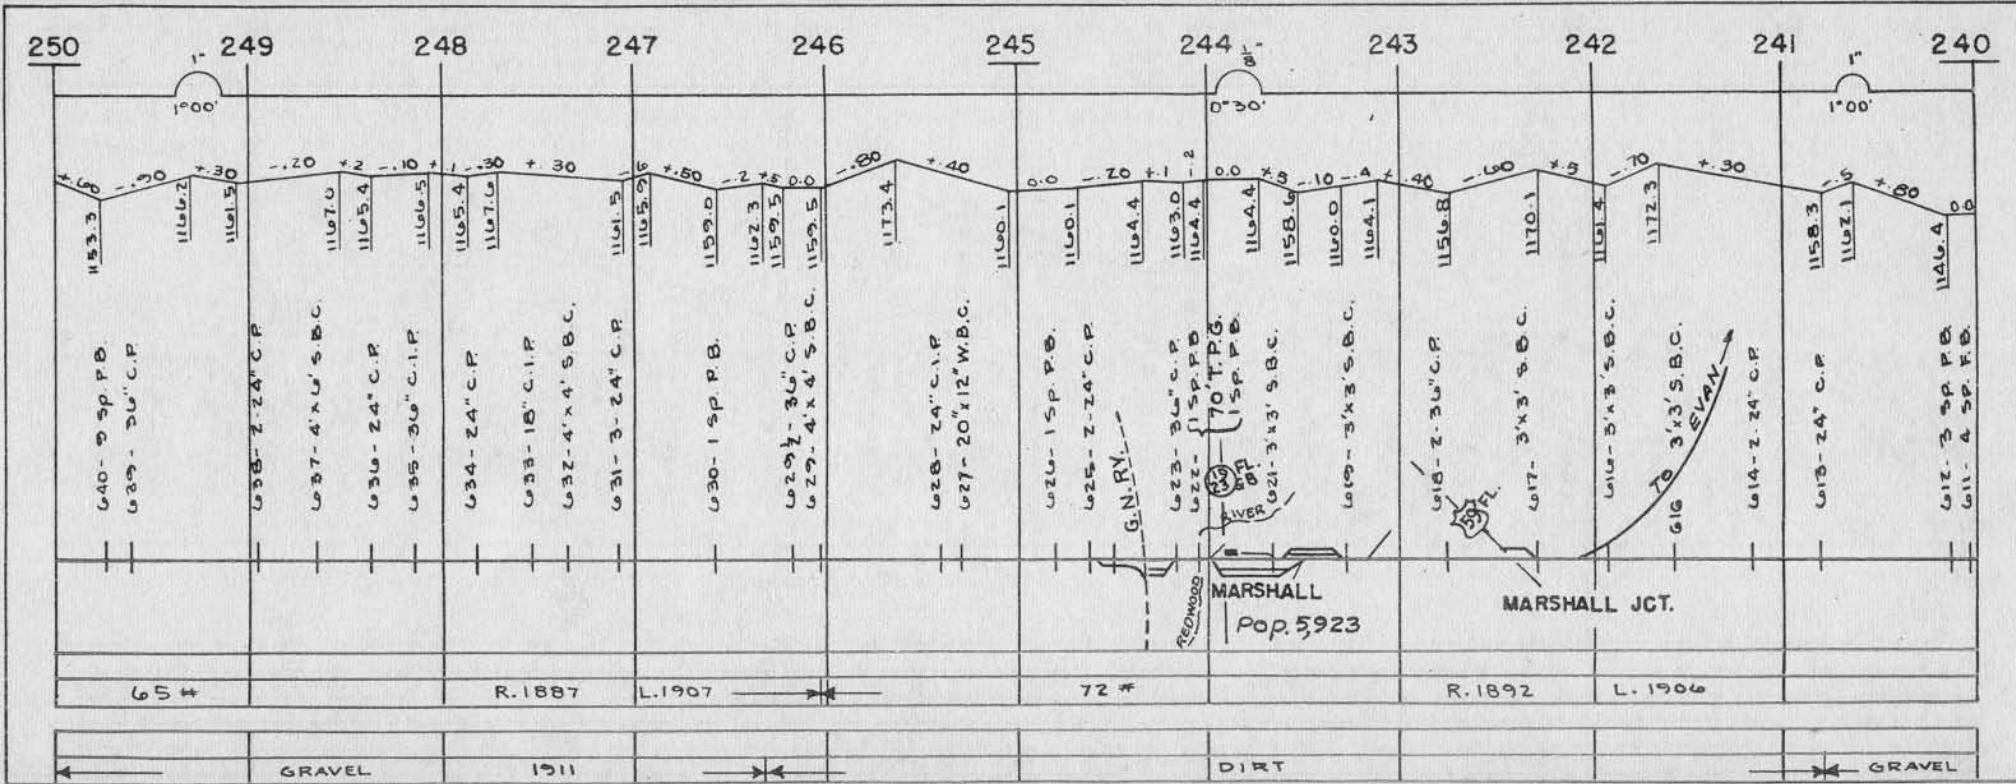 250 249 248 247 246 245 244 243 242 241 240
1° 8½" 1"
1°00' 0°30' 1°00'
+.60 -.90 +.30 -.20 +.2 -.10 +.1 -.30 +.30 -.6 +.50 -.2 +.5 0.0 -.80 +.40 0.0 -.20 +.1 -.2 0.0 +.8 -.10 -.4 +.40 -.60 +.5 -.70 +.30 -.5 +.80 0.0
1153.3
1166.2
1161.5
1167.0
1165.4
1166.5
1165.4
1167.6
1161.5
1165.9
1159.0
1162.3
1159.5
1159.5
1173.4
1160.1
1160.1
1164.4
1163.0
1164.4
1164.4
1158.6
1160.0
1164.1
1156.8
1170.1
1161.4
1172.3
1158.3
1162.1
1146.4
640-9 Sp. P.B.
639- 36" C.P.
638-2-24" C.P.
637-4'x6' S.B.C.
636-24" C.P.
635-36" C.I.P.
634-24" C.P.
633-18" C.I.P.
632-4'x4' S.B.C.
631-3-24" C.P.
630-1 Sp. P.B.
629½-36" C.P.
629-4'x4' S.B.C.
628-24" C.I.P.
627-20"x12" W.B.C.
626-1 Sp. P.B.
625-2-24" C.P.
G.N. RY.
623-36" C.P.
622- 1 Sp. P.B.
70' T.P.G.
1 Sp. P.B.
FL
RIVER
621-3'x3' S.B.C.
619-3'x3' S.B.C.
618-2-36" C.P.
59 FL.
617-3'x3' S.B.C.
616-3'x3' S.B.C.
TO EVAN
616 3'x3' S.B.C.
614-2-24" C.P.
613-24" C.P.
612-3 Sp. P.B.
611-4 Sp. F.B.
REDWOOD
MARSHALL
Pop. 5,923
MARSHALL JCT.
65# R.1887 L.1907 72# R.1892 L.1906
GRAVEL 1911 DIRT GRAVEL